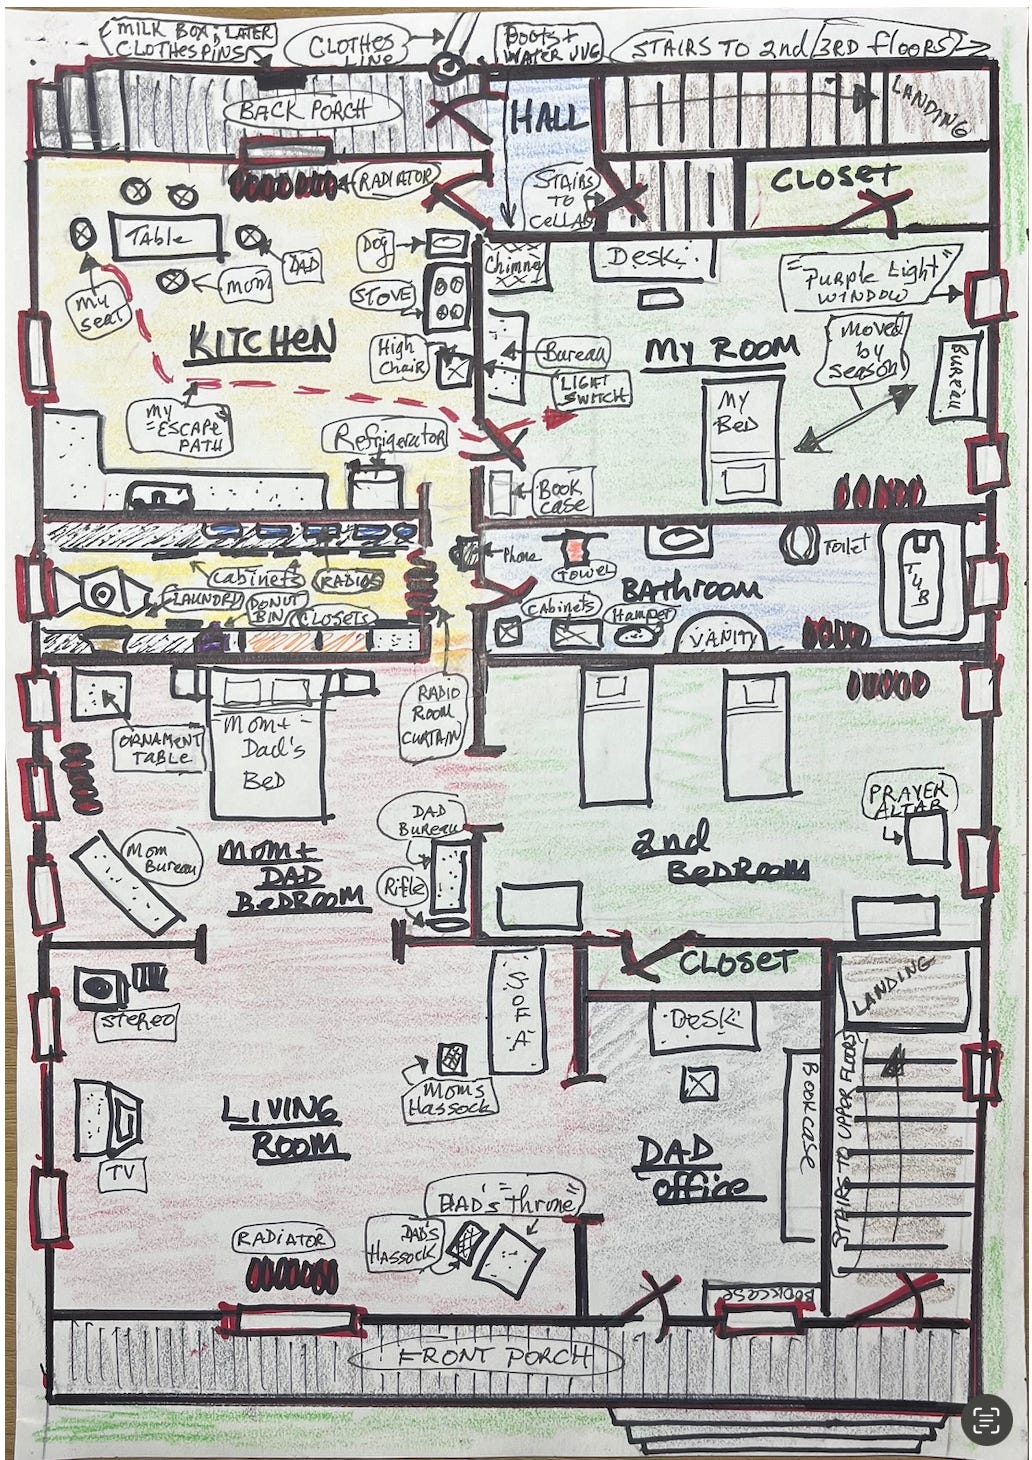 MILK BOX; LATER
CLOTHESPINS
CLOTHES
LINE
Boots +
WATER JUG
STAIRS TO 2nd/3RD floors
BACK PORCH
HALL
LANDING
RADIATOR
STAIRS
TO
CELLAR
CLOSET
Table
DAD
mom
my
seat
Dog
STOVE
Chimney
Desk
"Purple Light"
WINDOW
KITCHEN
High
Chair
Bureau
LIGHT
SWITCH
MY ROOM
moved
by
season
Bureau
MY
BED
MY
"ESCAPE"
PATH
Refrigerator
BOOK
CASE
Cabinets
RADIOS
LAUNDRY
DONUT
BIN
CLOSETS
Phone
TOWEL
Toilet
TUB
BAthroom
Cabinets
Hamper
VANITY
RADIO
ROOM
CURTAIN
ORNAMENT
TABLE
Mom +
Dad's
BED
Mom
Bureau
DAD
Bureau
Rifle
Mom +
DAD
BeDROOM
PRAYER
ALTAR
2nd
BeDROOM
Stereo
SOFA
CLOSET
LANDING
DeSK
Moms
Hassock
TV
LIVING
ROOM
BOOKCASE
STAIRS TO UPPER FLOORS
DAD
office
DAD'S "Throne"
DAD'S
HASSOCK
RADIATOR
BOOKCASE
FRONT PORCH